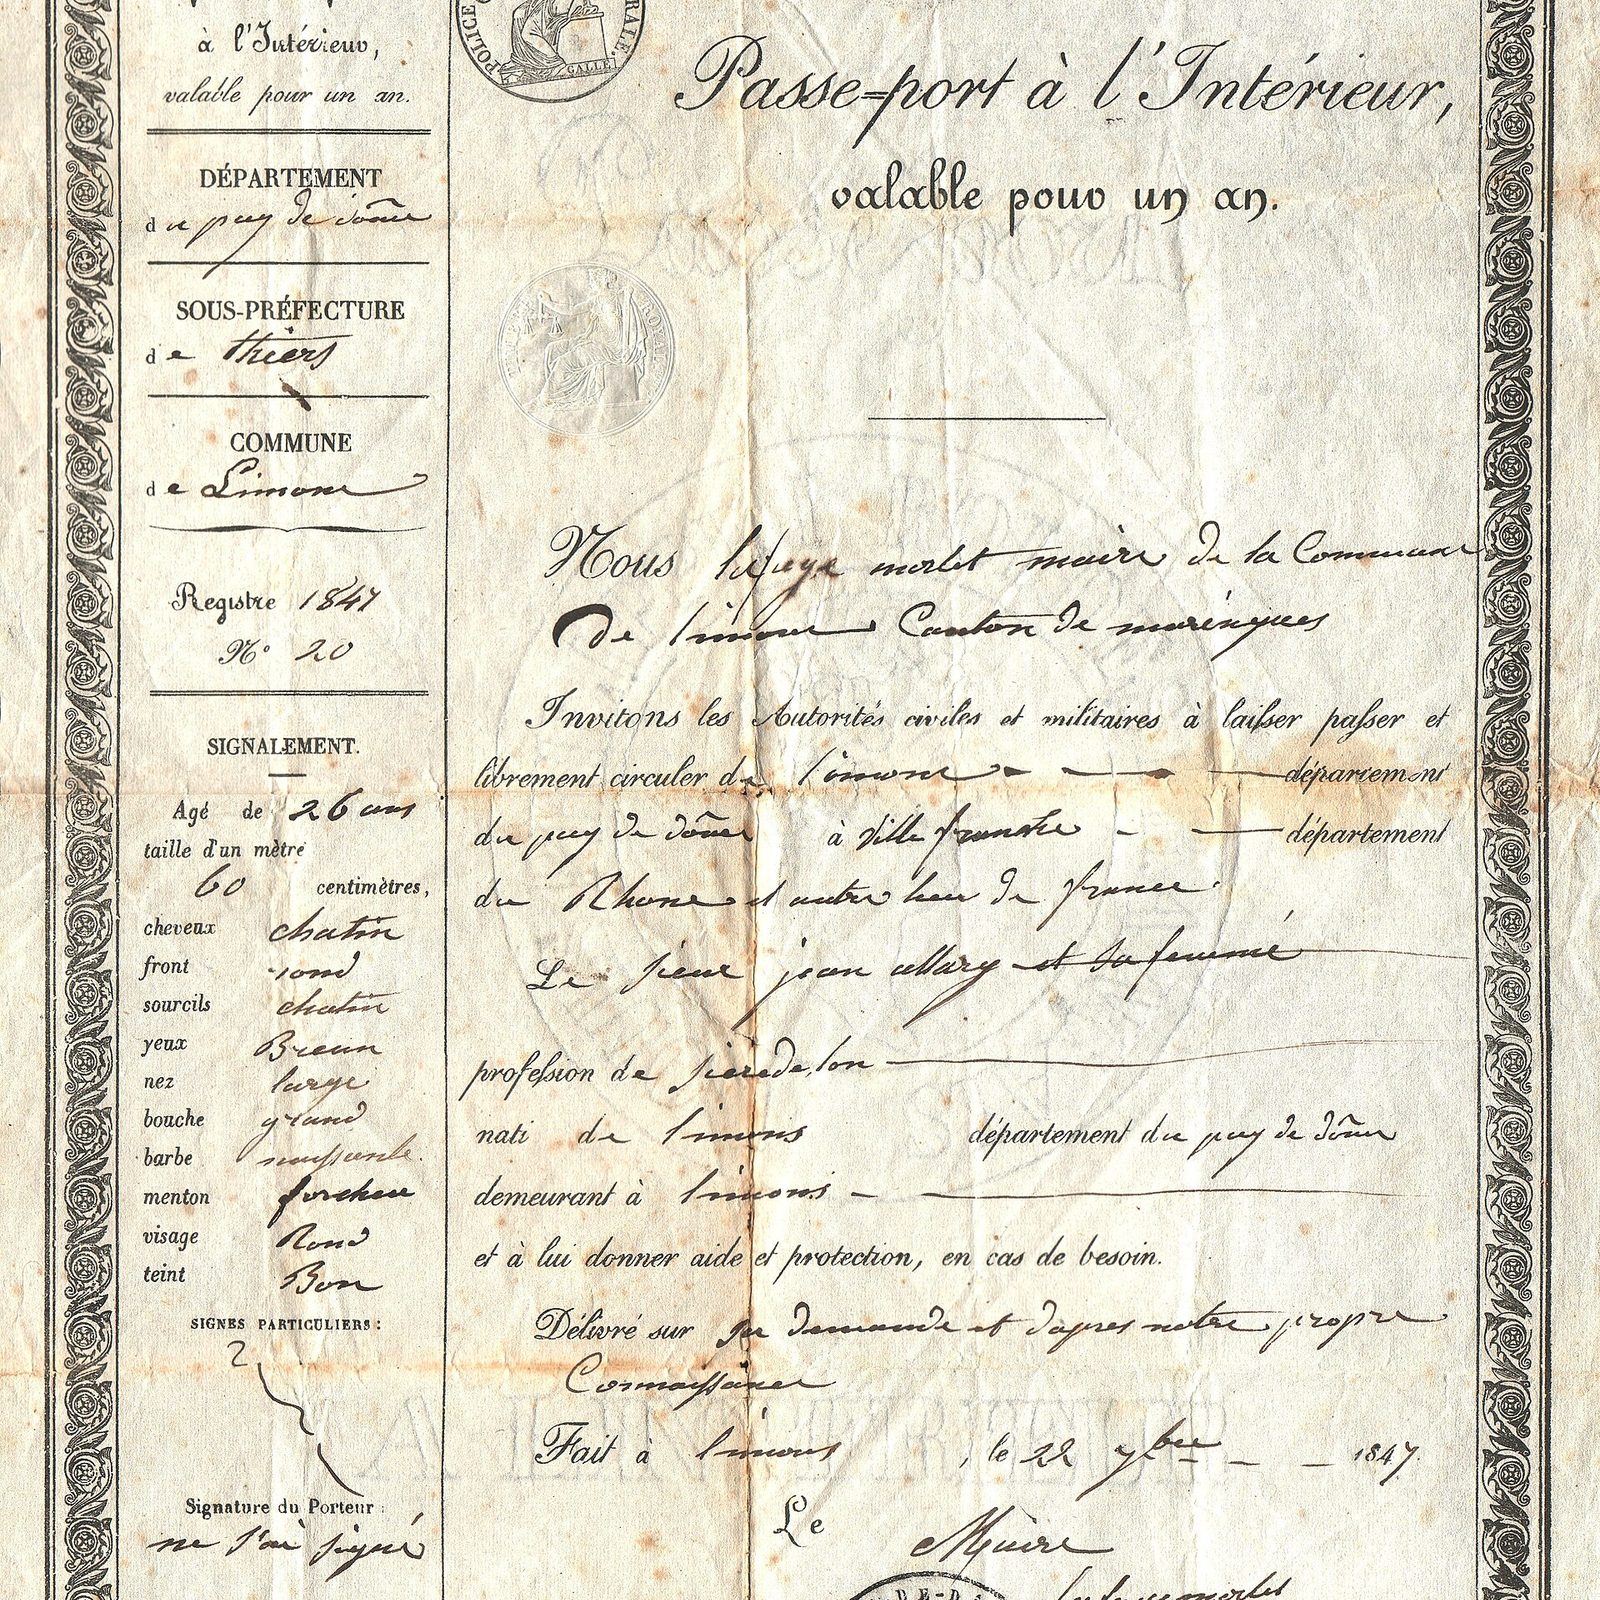 à l'Intérieur,
valable pour un an.
DÉPARTEMENT
du puy de dôme
SOUS-PRÉFECTURE
de thiers
COMMUNE
de Limons
Registre 1847
N° 20
SIGNALEMENT.
Agé de 26 ans
taille d'un mètre
60 centimètres,
cheveux chatin
front rond
sourcils chatin
yeux Breun
nez large
bouche grand
barbe naissante
menton forcheu
visage Rond
teint Bon
SIGNES PARTICULIERS:
Signature du Porteur:
ne sai signé
POLICE GÉNÉRALE.
GALLE
ROYAL
Passe=port à l'Intérieur,
valable pour un an.
Nous lafaye morlet maire de la Commune
De limons Canton de maringues
Invitons les Autorités civiles et militaires à laisser passer et
librement circuler de limons département
du puy de dôme à ville franche département
du Rhone et autre lieu de france
Le sieur jean allary et sa femme
profession de
nati de limons département du puy de dôme
demeurant à limons
et à lui donner aide et protection, en cas de besoin.
Délivré sur sa demande et dapres notre propre
Connaissance
Fait à limons, le 22 7bre 1847.
Le Maire
DE-D
morlet